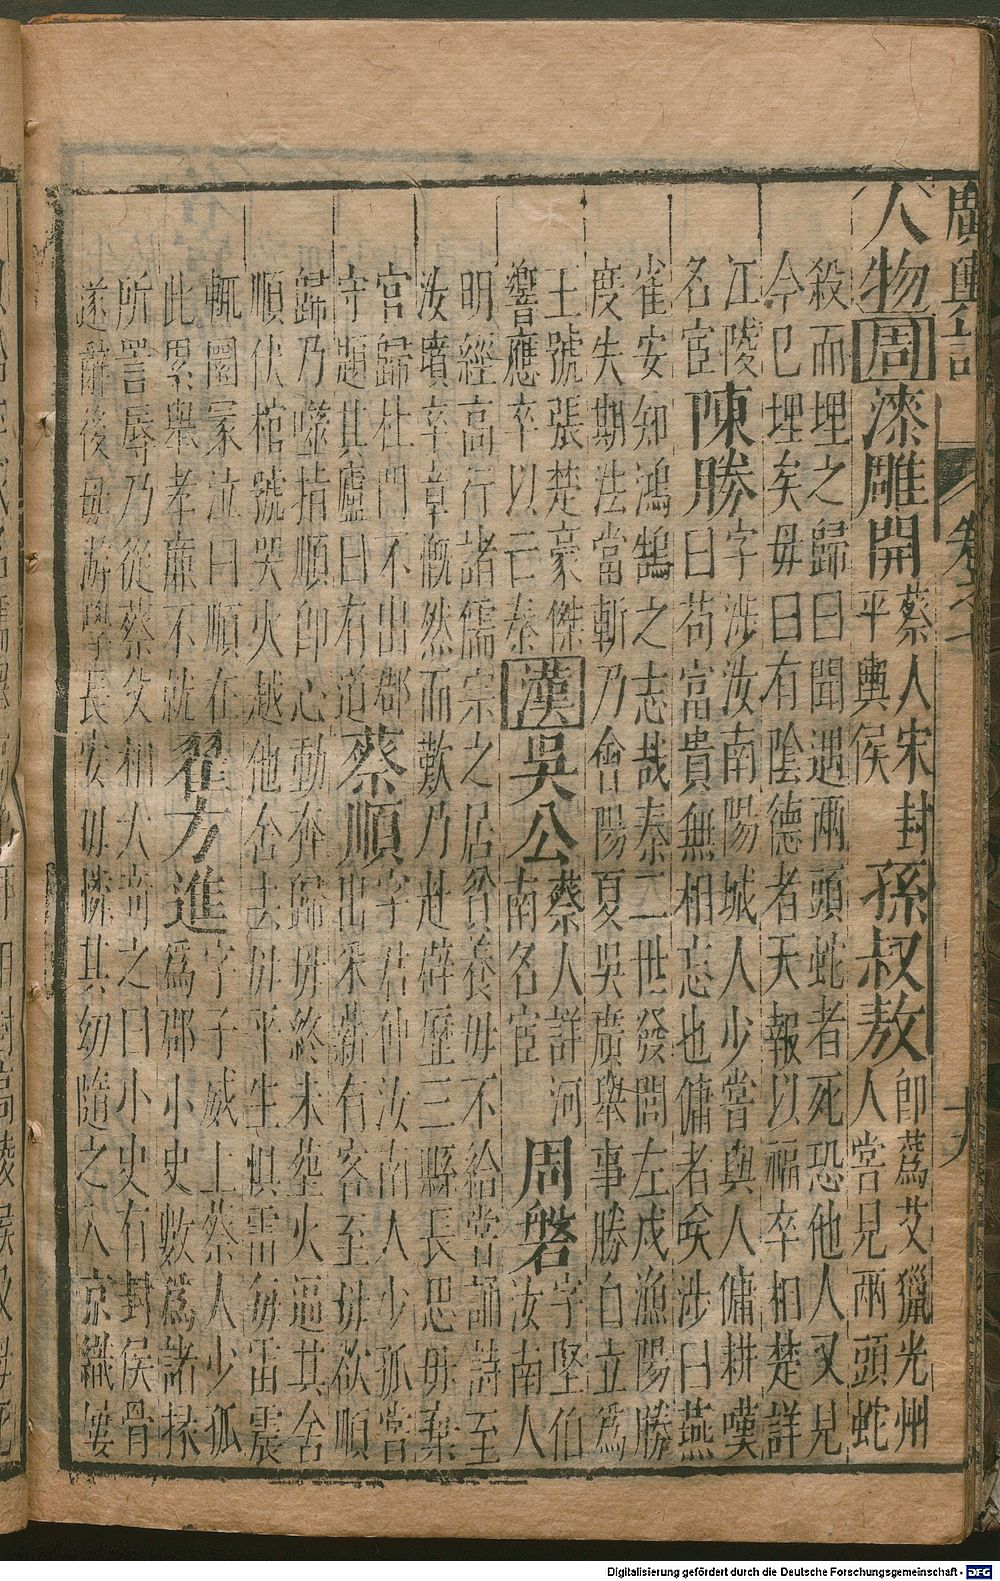 廣輿記 卷之六
人物 周 漆雕開 蔡人宋封
平輿侯 孫叔敖 卽蔿艾獵光州
人嘗見兩頭蛇
殺而埋之歸曰聞遇兩頭蛇者死恐他人又見
今巳埋矣毋曰有陰德者天報以福卒相楚詳
江陵
名宦 陳勝 字涉汝南陽城人少嘗與人傭耕嘆
曰苟富貴無相忘也傭者笑涉曰燕
雀安知鴻鵠之志哉秦二世發閭左戍漁陽勝
度失期法當斬乃會陽夏吳廣舉事勝自立爲
王號張楚豪傑
響應卒以亡秦 漢 吳公 蔡人詳河
南名宦 周磐 字堅伯
汝南人
明經高行諸儒宗之居貧養毋不給嘗誦詩至
汝墳卒章慨然而歎乃赴辟歷三縣長思毋棄
官歸杜門不出郡
守題其廬曰有道 蔡順 字君仲汝南人少孤嘗
出采薪有客至毋欲順
歸乃噬指順卽心動奔歸毋終未塟火逼其舍
順伏棺號哭火越他舍去毋平生懼雷每雷震
輒圜冢泣曰順在
此累舉孝廉不就 翟方進 字子威上蔡人少孤
爲郡小史數爲諸掾
所詈辱乃從蔡父相大奇之曰小史有封侯骨
遂辭後毋游學長安毋憐其幼隨之入京織屨
Digitalisierung gefördert durch die Deutsche Forschungsgemeinschaft - DFG